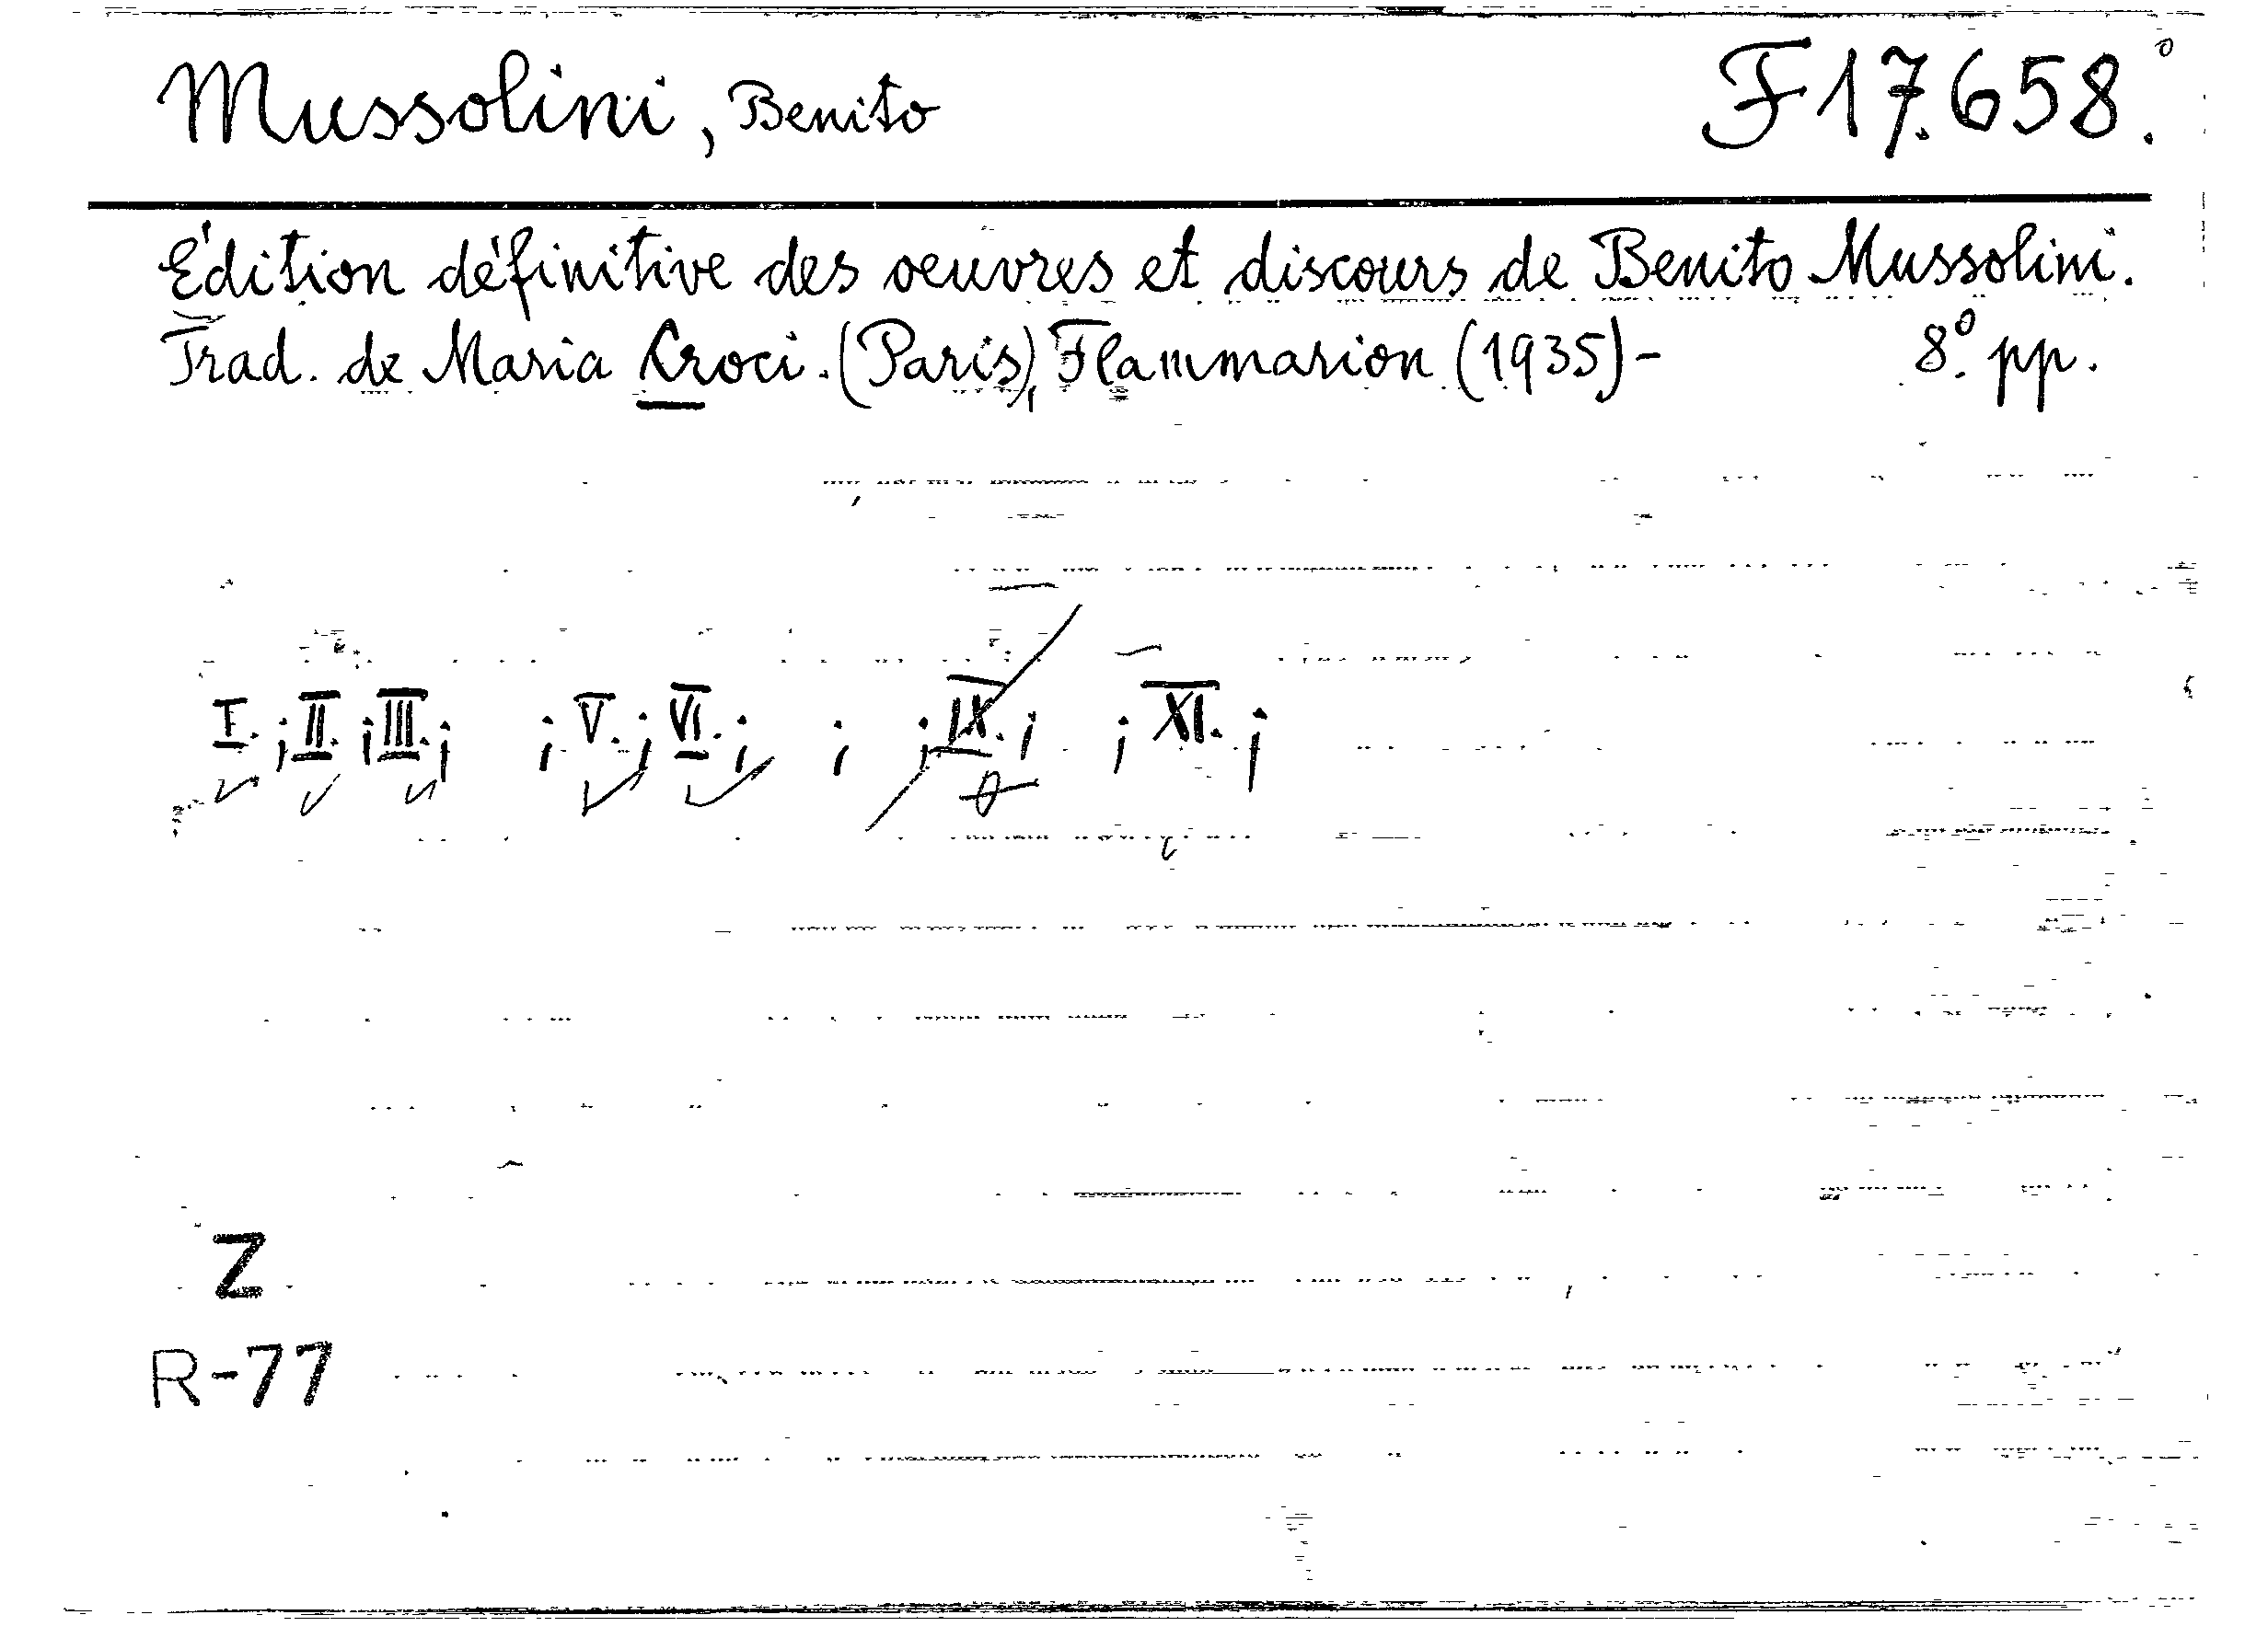 Mussolini, Benito F 17.658.°
Édition définitive des oeuvres et discours de Benito Mussolini.
Trad. de Maria Croci. (Paris), Flammarion (1935)- 8°. pp.
I.; II.; III.; ; V.; VI.; ; ; IX.; ; XI.;
Z
R-77